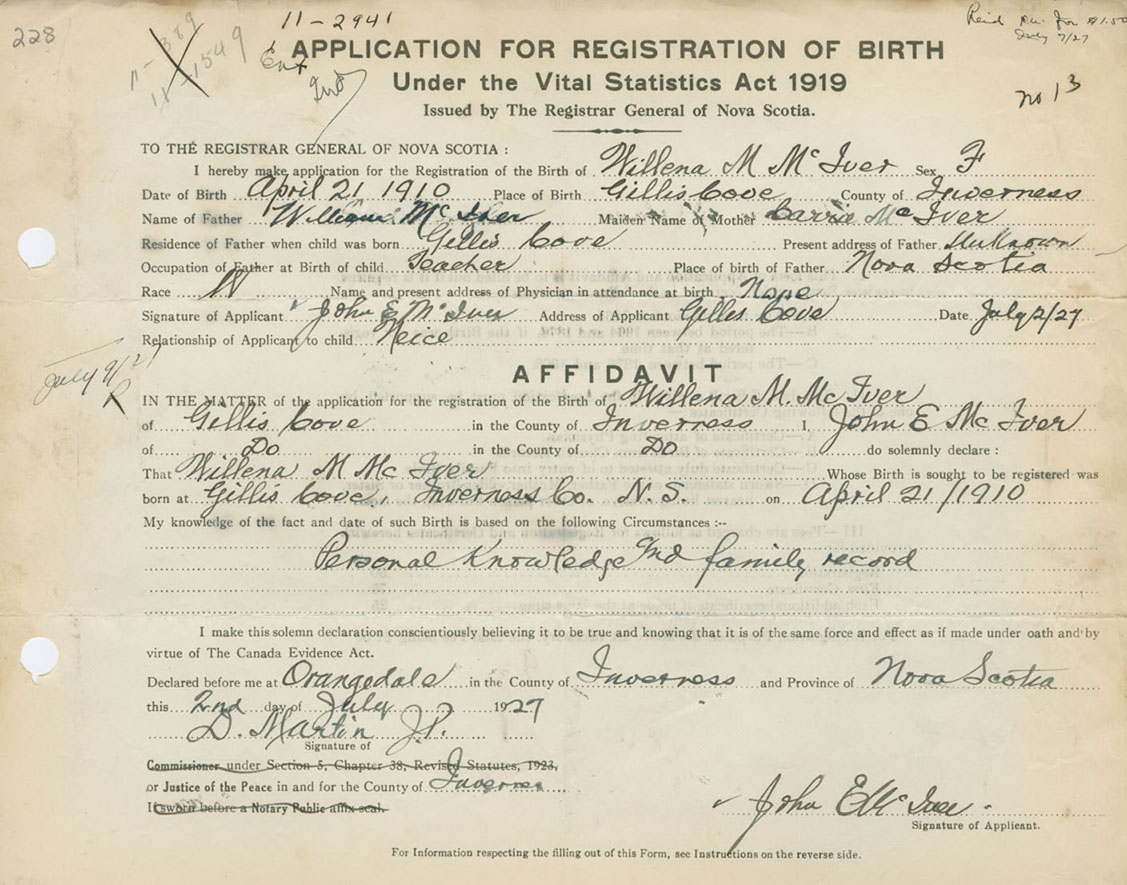 228
11-389
11-1549
11-2941
Ent
Ind
Reid
for $1.50
July 7/27
APPLICATION FOR REGISTRATION OF BIRTH
Under the Vital Statistics Act 1919
Issued by The Registrar General of Nova Scotia.
no 13
TO THE REGISTRAR GENERAL OF NOVA SCOTIA :
I hereby make application for the Registration of the Birth of Willena M McIver Sex F
Date of Birth April 21 1910 Place of Birth Gillis Cove County of Inverness
Name of Father William McIver Maiden Name of Mother Carrie McIver
Residence of Father when child was born Gillis Cove Present address of Father Unknown
Occupation of Father at Birth of child Teacher Place of birth of Father Nova Scotia
Race W Name and present address of Physician in attendance at birth None
Signature of Applicant John E McIver Address of Applicant Gillis Cove Date July 2/27
Relationship of Applicant to child Neice
July 9/27
R
AFFIDAVIT
IN THE MATTER of the application for the registration of the Birth of Willena M. McIver
of Gillis Cove in the County of Inverness I, John E McIver
of Do in the County of Do do solemnly declare :
That Willena M McIver Whose Birth is sought to be registered was
born at Gillis Cove, Inverness Co. N.S. on April 21/1910
My knowledge of the fact and date of such Birth is based on the following Circumstances :--
Personal Knowledge And family record
I make this solemn declaration conscientiously believing it to be true and knowing that it is of the same force and effect as if made under oath and by
virtue of The Canada Evidence Act.
Declared before me at Orangedale in the County of Inverness and Province of Nova Scotia
this 2nd day of July 1927
D. Martin J.P.
Signature of
Commissioner under Section 5, Chapter 38, Revised Statutes, 1923,
or Justice of the Peace in and for the County of Inverness
If sworn before a Notary Public affix seal.
John E McIver
Signature of Applicant.
For Information respecting the filling out of this Form, see Instructions on the reverse side.